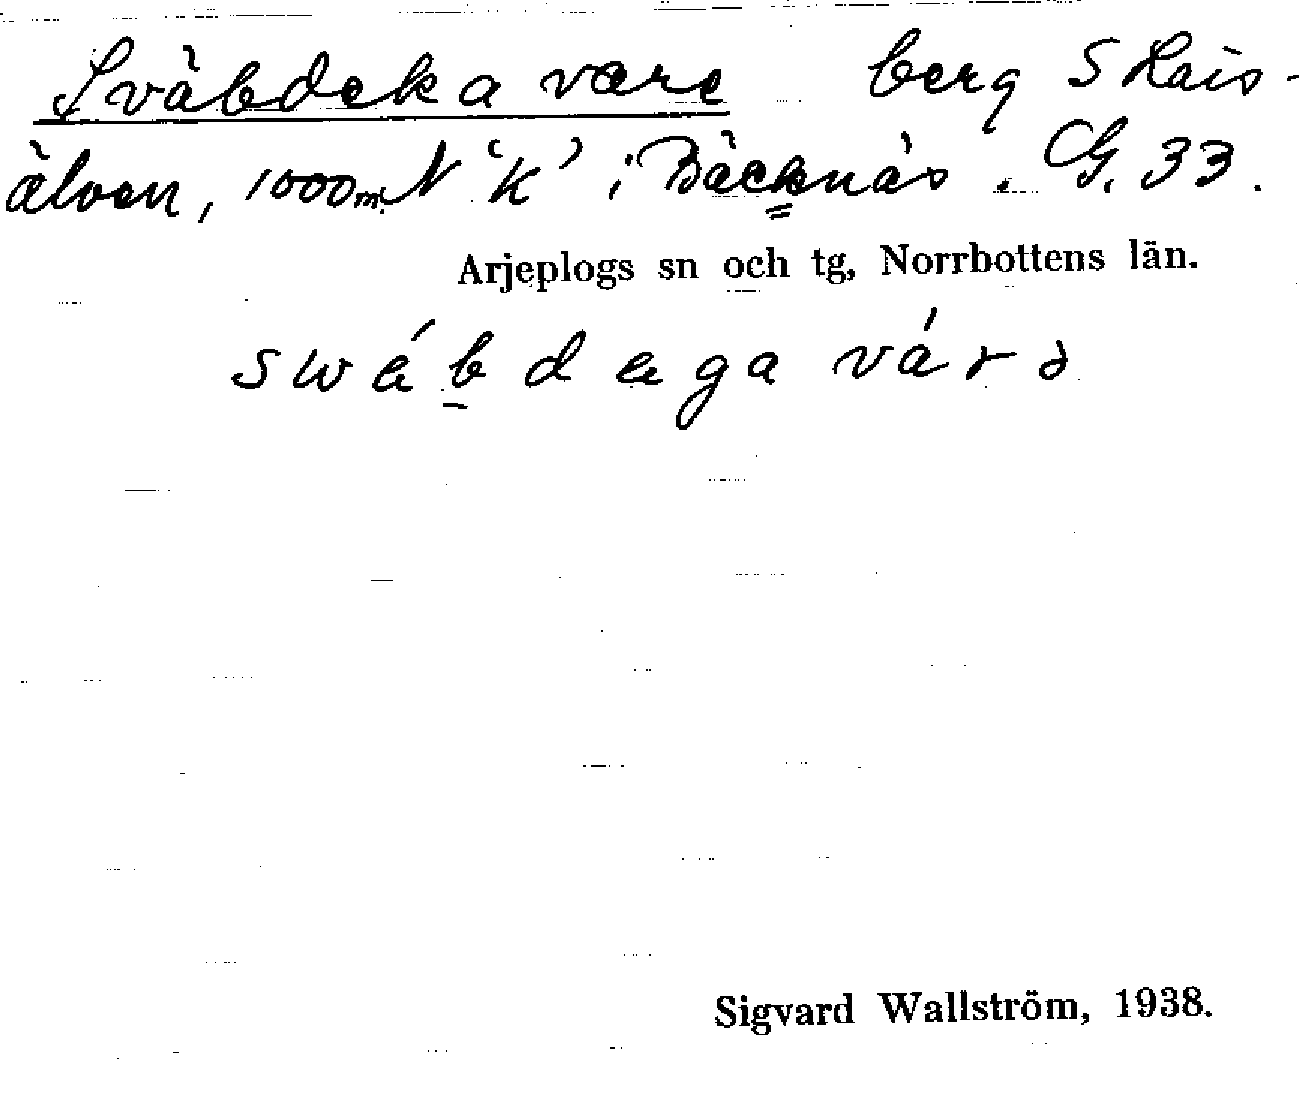 Sväbdeka vare berg S Kais-
älven, 1000m N 'K' i 'Bäcknäs. G. 33.
Arjeplogs sn och tg, Norrbottens län.
swábdega várə
Sigvard Wallström, 1938.